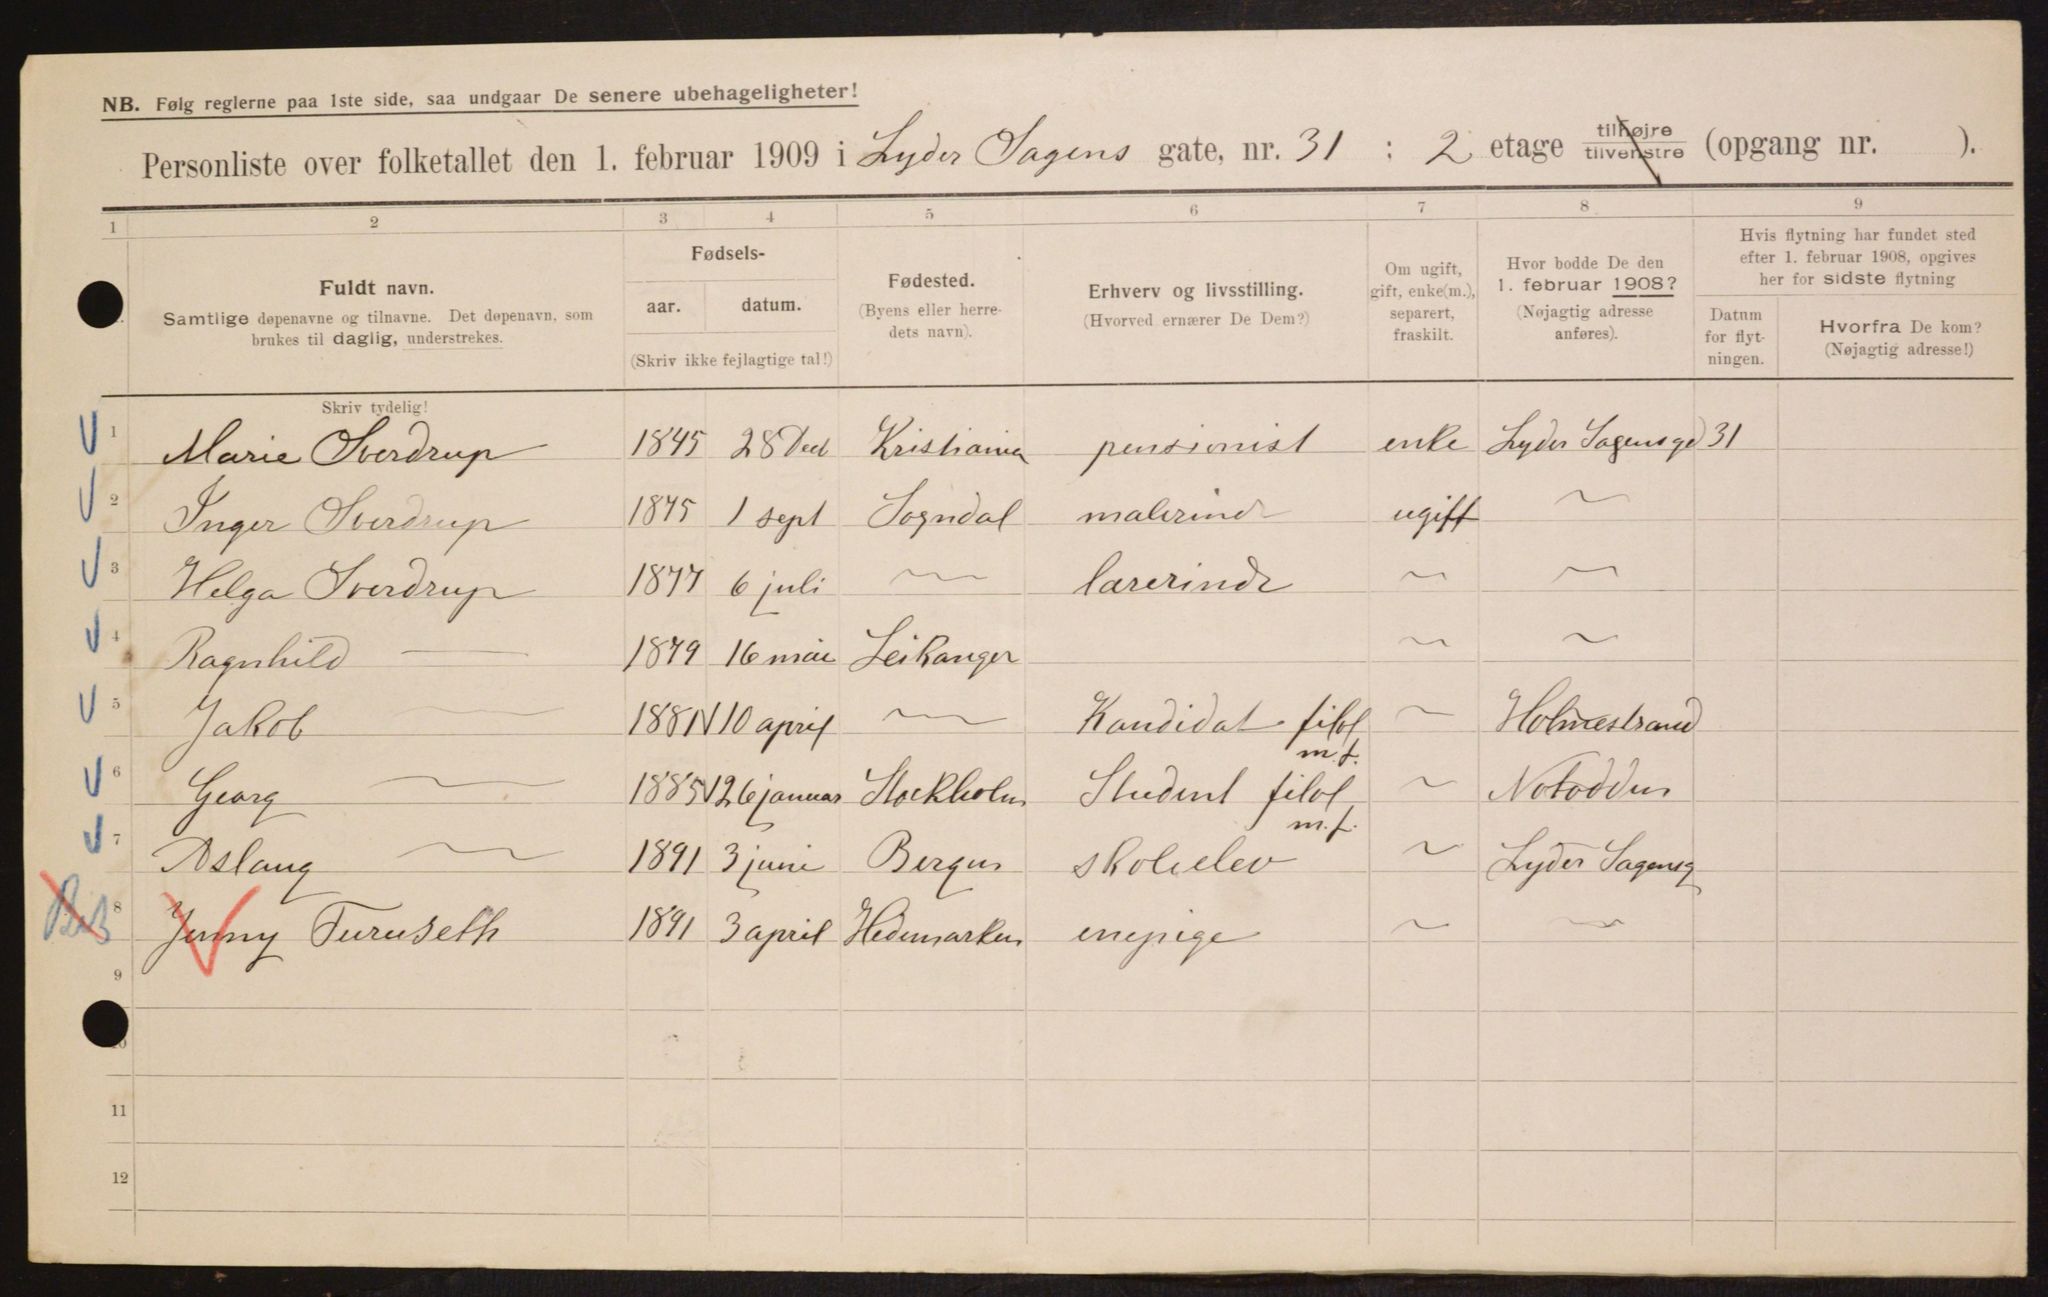 NB. Følg reglerne paa 1ste side, saa undgaar De senere ubehageligheter!
Personliste over folketallet den 1. februar 1909 i Lyder Sagens gate, nr. 31 ; 2 etage tilhøjre tilvenstre (opgang nr. ).
1 2 3 4 5 6 7 8 9
Fuldt navn.
Samtlige døpenavne og tilnavne. Det døpenavn, som
brukes til daglig, understrekes.
Skriv tydelig!
Fødsels-
aar. datum.
(Skriv ikke fejlagtige tal!)
Fødested.
(Byens eller herre-
dets navn).
Erhverv og livsstilling.
(Hvorved ernærer De Dem?)
Om ugift,
gift, enke(m.),
separert,
fraskilt.
Hvor bodde De den
1. februar 1908?
(Nøjagtig adresse
anføres).
Hvis flytning har fundet sted
efter 1. februar 1908, opgives
her for sidste flytning
Datum
for flyt-
ningen.
Hvorfra De kom?
(Nøjagtig adresse!)
1 Marie Sverdrup 1845 28 Decb Kristiania pensionist enke Lyder Sagensgd 31
2 Inger Sverdrup 1875 1 sept Sogndal malerinde ugift ~
3 Helga Sverdrup 1877 6 juli ~ lærerinde ~ ~
4 Ragnhild — 1879 16 mai Leikanger ~ ~
5 Jakob — 1881 10 april ~ Kandidat filol ~ Holmestrand
m.f.
6 Georg — 1885 26 januar Stockholm Student filol ~ Notodden
m.f.
7 Aslaug — 1891 3 juni Bergen skoleelev ~ Lyder Sagensg
8 Jenny Furuseth 1891 3 april Hedemarken enepige ~ ~
9
10
11
12